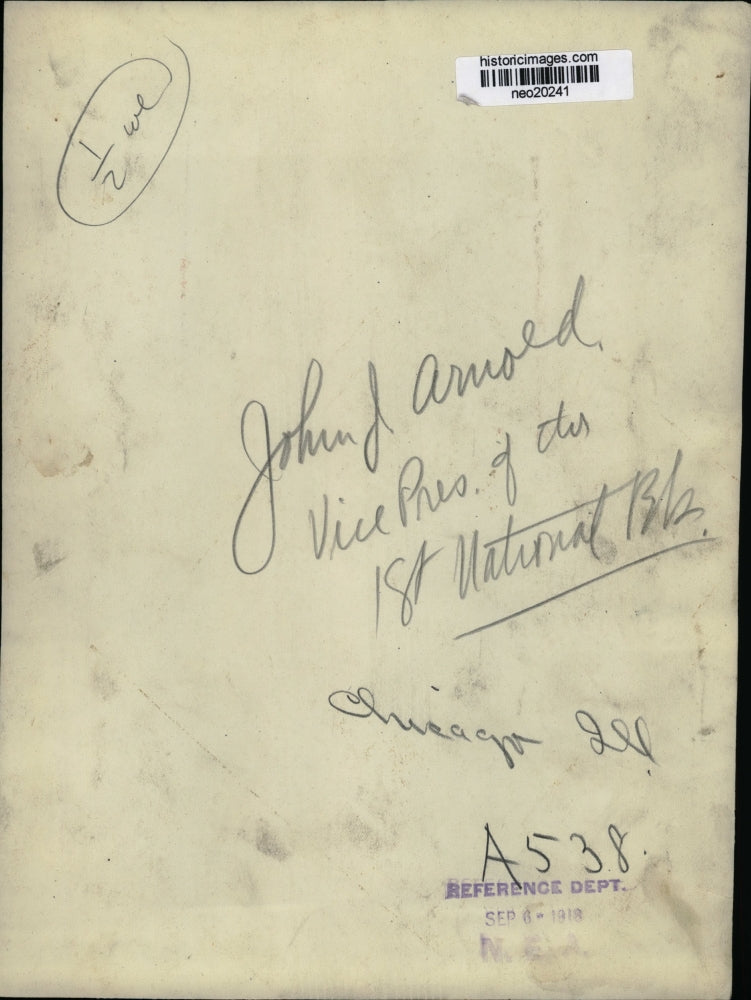 historicimages.com
neo20241
1/2 we
John J Arnold.
Vice Pres. of the
1st National Bk.
Chicago Ill.
A538.
REFERENCE DEPT.
SEP 6 - 1918
N. E. A.